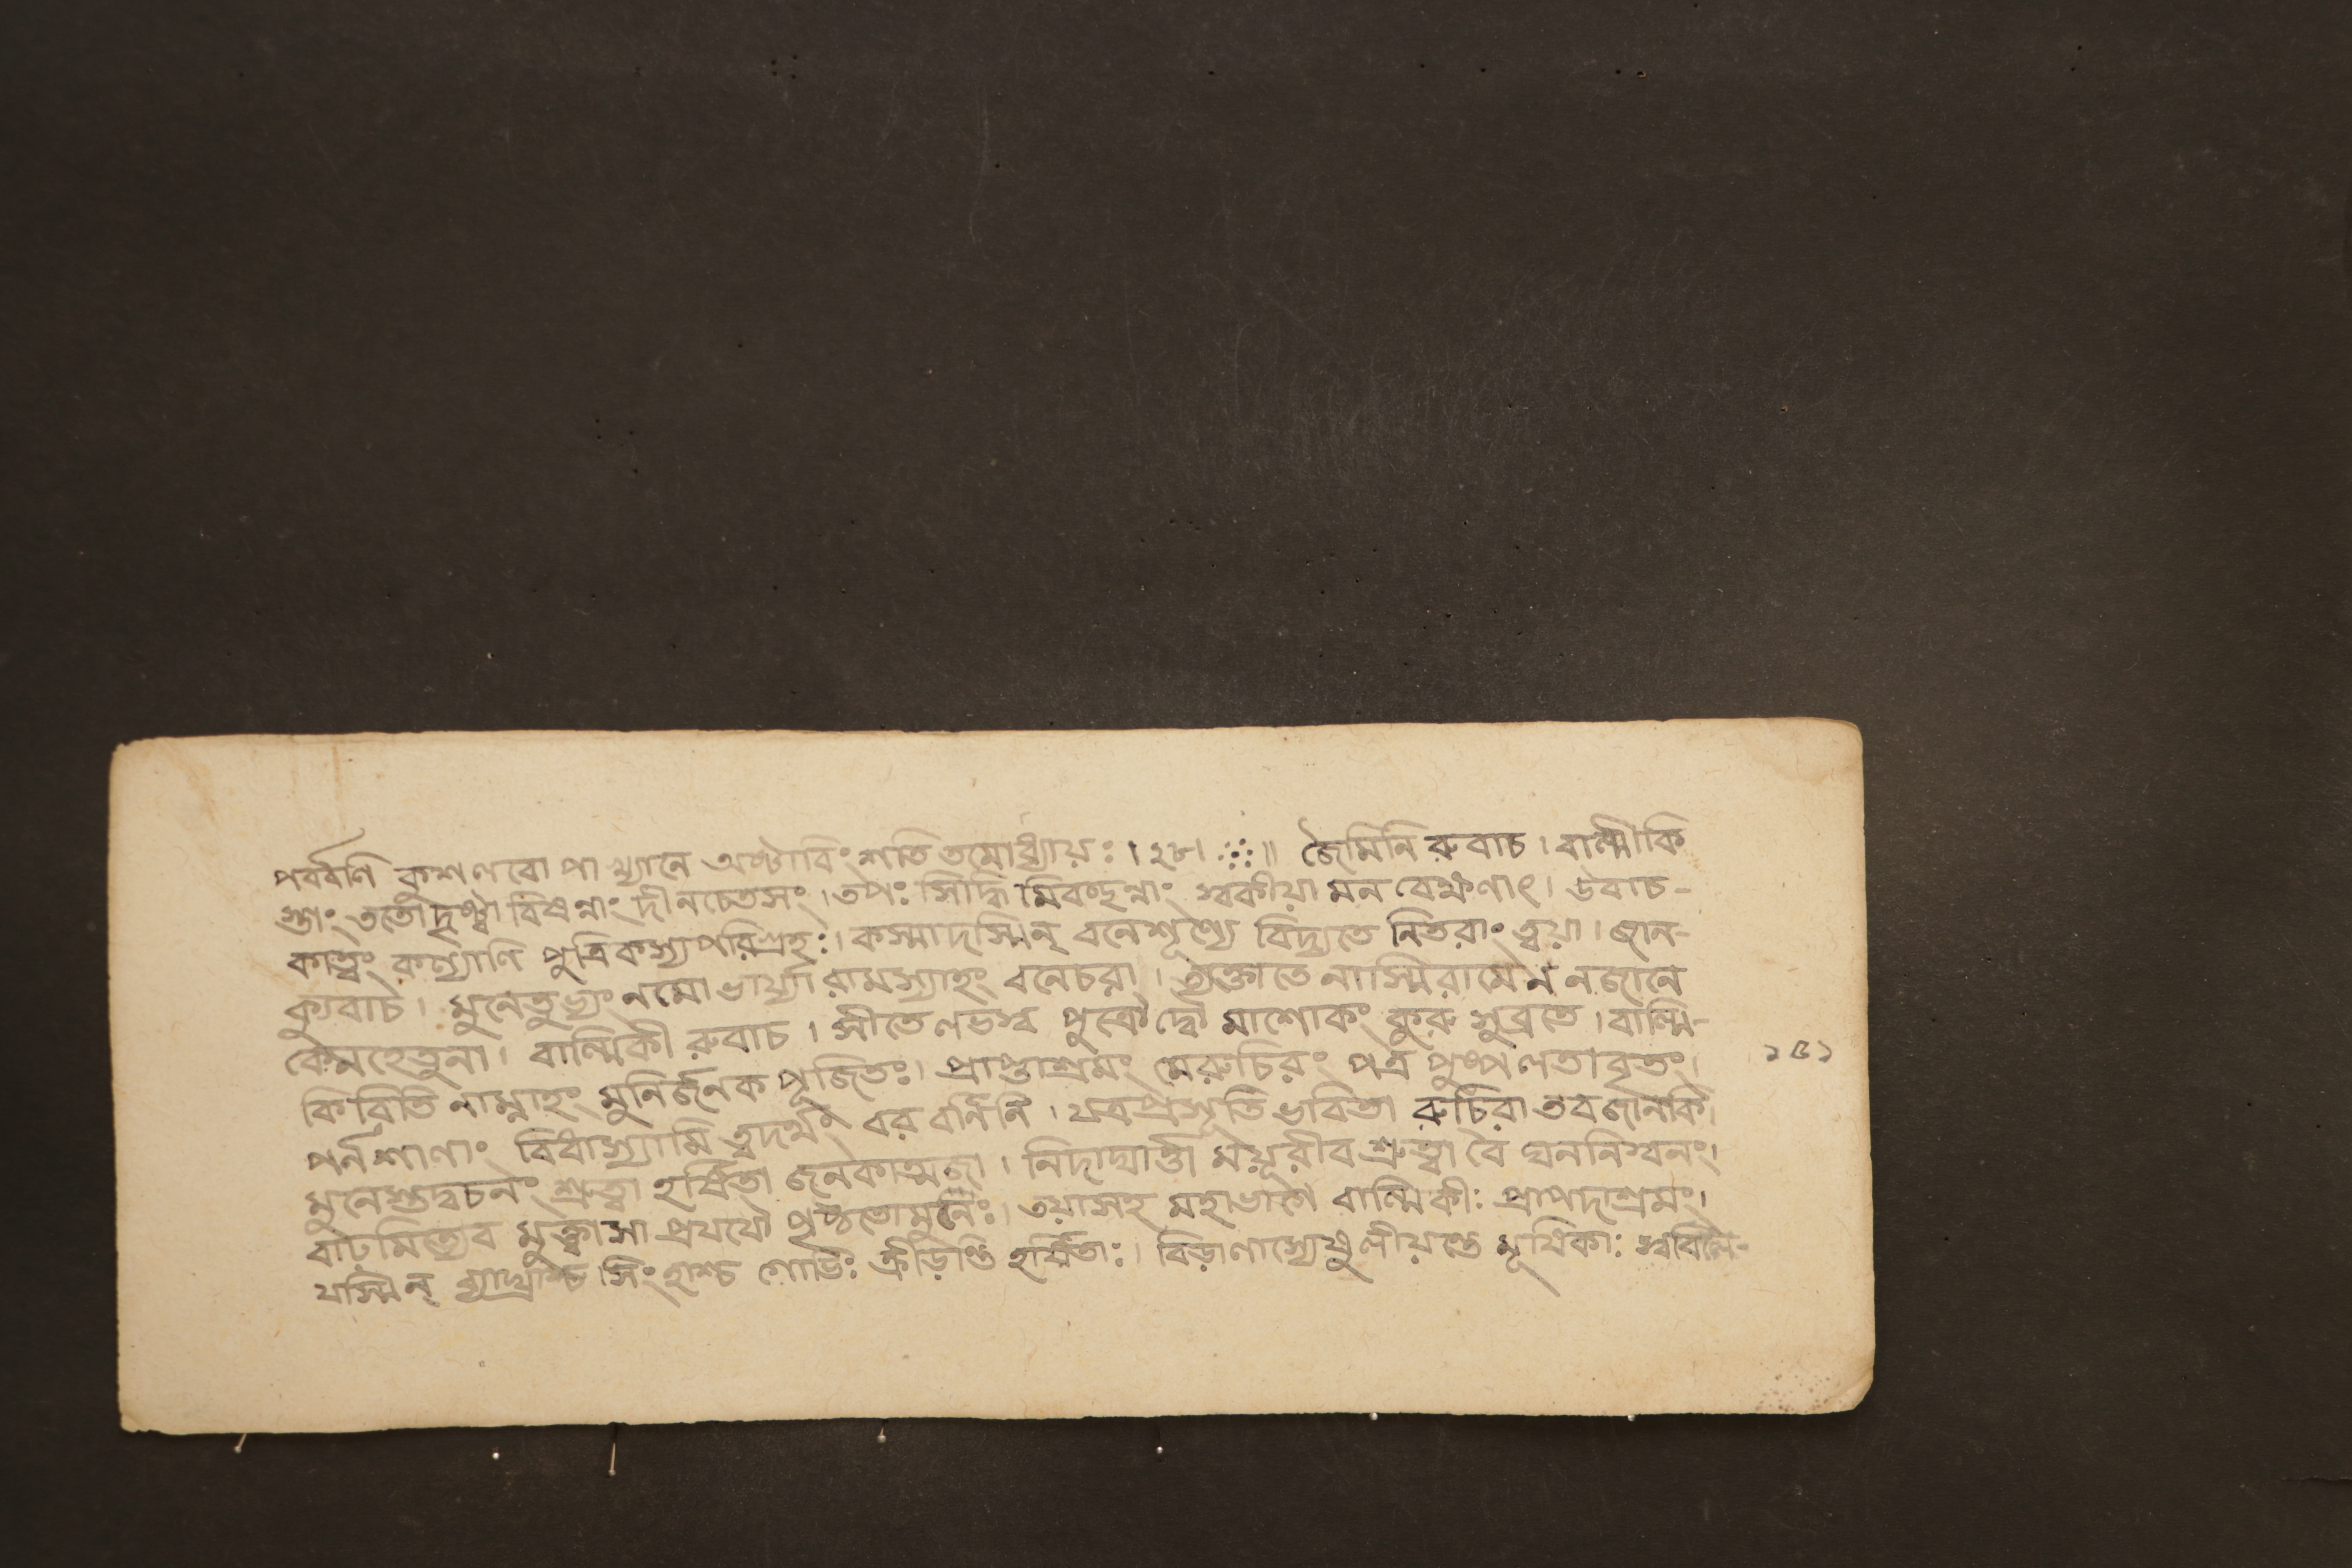 পর্ব্বণি কুশলবোপাখ্যানে অষ্টাবিংশতিতমোঽধ্যায়ঃ । ২৮ । জৈমিনি রুবাচ । বাল্মীকি
স্তাং ততোদৃষ্ট্বা বিষণ্নাং দীনচেতসং । তপঃ সিদ্ধি মিবচ্ছন্নাং স্বকীয়া মনবেক্ষণাৎ । উবাচ-
কাত্বং কল্যাণি পুত্রিকস্যপরিগ্রহঃ । কস্মাদস্মিন্ বনেশূণ্যে বিদ্যতে নিতরাং ত্বয়া । জান-
ক্যুবাচ । মুনেতুভ্যং নমো ভার্য্যা রামস্যাহং বনেচরা । ত্যক্তাতে নাস্মিরামেন নজানে
কেনহেতুনা । বাল্মিকী রুবাচ । সীতে লভস্ব পুত্রৌদ্বৌ মাশোকং কুরু সুব্রতে । বাল্মি-
কি রিতি নাম্নাহং মুনির্জনক পূজিতঃ । প্রাপ্তাশ্রমং মেরুচিরং পত্র পুষ্পলতাবৃতং ।
পর্নশালাং বিধাস্যামি ত্বদর্থং বর বর্নিনি । যত্রপ্রসূতি র্ভবিতা রুচিরা তবজানকি
মুনেস্তদ্বচনং শ্রুত্বা হর্ষিতা জনকাত্মজা । নিদাঘার্ত্তা ময়ূরীব শ্রুত্বা বৈ ঘননিস্বনং ।
বাঢ়মিত্যেব মুক্ত্বাসা প্রযযৌ পৃষ্ঠতোমুনেঃ । তয়াসহ মহাভাগৈ বাল্মিকীঃ প্রাপদাশ্রমং ।
যস্মিন্ ব্যাঘ্রাশ্চ সিংহাশ্চ গোভিঃ ক্রীড়ন্তি হর্ষিতাঃ । বিড়ালাস্যেষু লীয়ন্তে মূষিকাঃ
১৫১